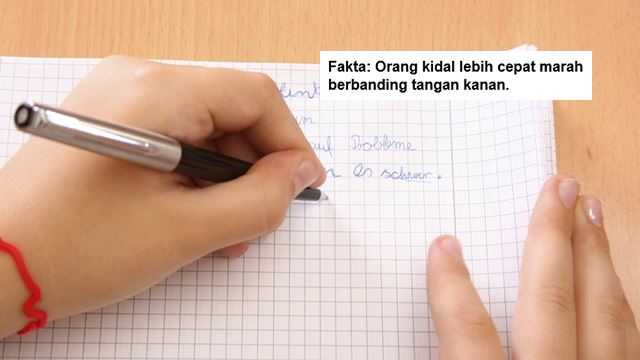 Fakta: Orang kidal lebih cepat marah
berbanding tangan kanan.
auf Probleme
es schwer.